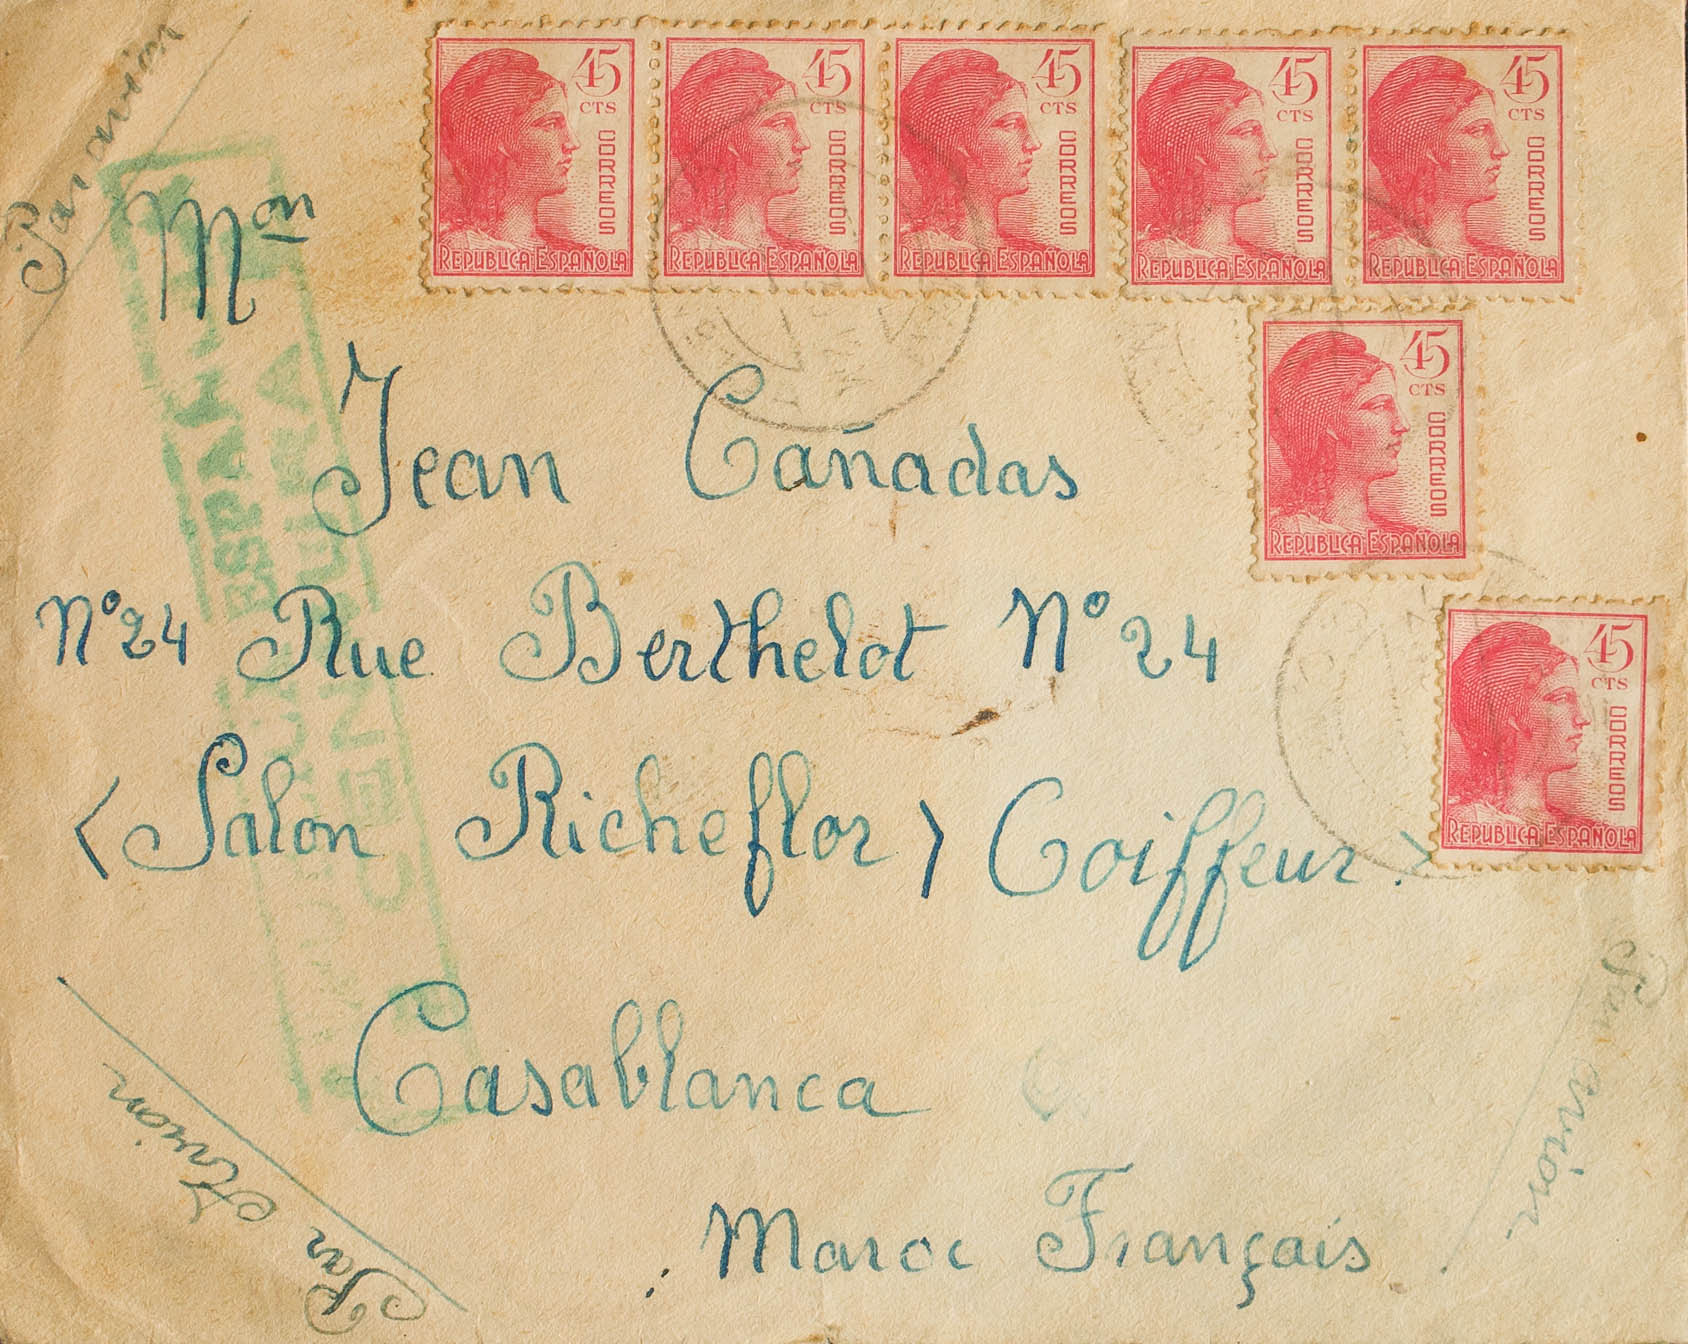 Par avion
45 CTS CORREOS REPUBLICA ESPAÑOLA
45 CTS CORREOS REPUBLICA ESPAÑOLA
45 CTS CORREOS REPUBLICA ESPAÑOLA
45 CTS CORREOS REPUBLICA ESPAÑOLA
45 CTS CORREOS REPUBLICA ESPAÑOLA
45 CTS CORREOS REPUBLICA ESPAÑOLA
45 CTS CORREOS REPUBLICA ESPAÑOLA
Mon
Jean Cañadas
Nº 24 Rue Berthelot Nº 24
(Salon Richeflor) Coiffeur.)
Casablanca
Maroc Français
Par Avion
Par avion
ESPAÑ
CENSURA